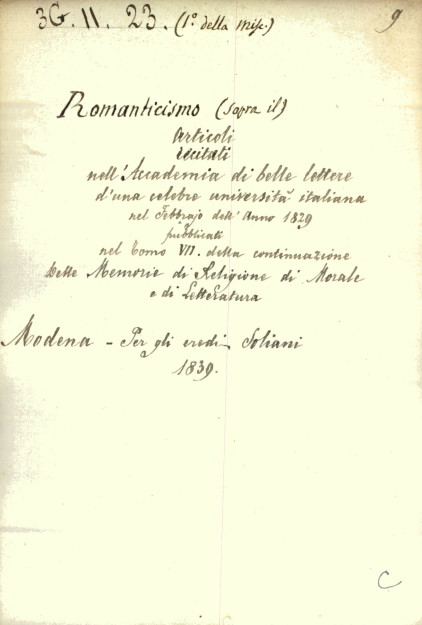 3G. II. 23. (1º della Misc.) 9
Romanticismo (Sopra il)
Articoli
recitati
nell'Accademia di belle lettere
d'una celebre università italiana
nel Febbrajo dell'Anno 1829
pubblicati
nel Tomo VII. della continuazione
delle Memorie di Religione di Morale
e di Letteratura
Modena - Per gli eredi Soliani
1839.
C